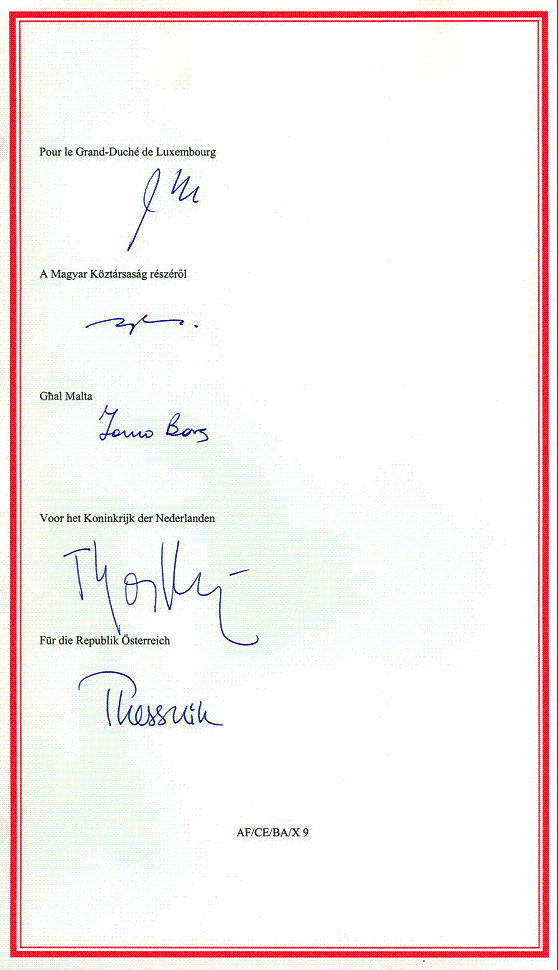 Pour le Grand-Duché de Luxembourg
A Magyar Köztársaság részéről
Għal Malta
Borg
Voor het Koninkrijk der Nederlanden
Für die Republik Österreich
AF/CE/BA/X 9